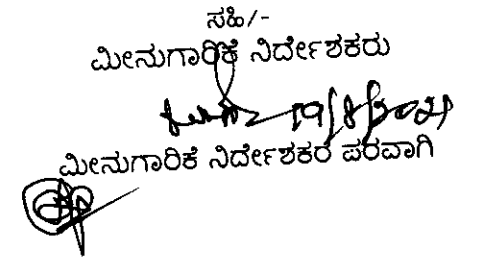 ಸಹಿ/-
ಮೀನುಗಾರಿಕೆ ನಿರ್ದೇಶಕರು
19/8/2021
ಮೀನುಗಾರಿಕೆ ನಿರ್ದೇಶಕರ ಪರವಾಗಿ